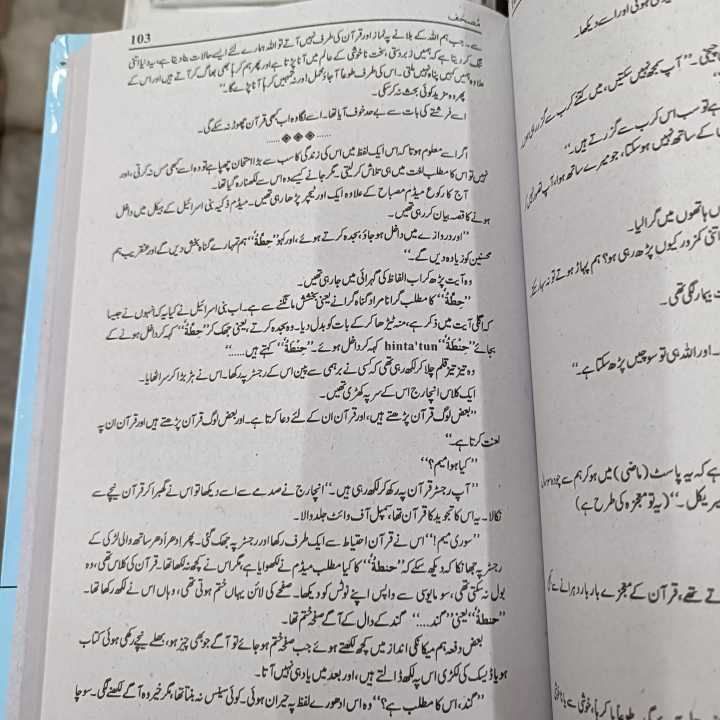 مُصحَف
103
سے۔ جب ہم اللہ کے بلانے پہ نماز اور قرآن کی طرف نہیں آتے تو اللہ ہمارے لئے ایسے حالات بنا دیتا ہے، یہ دنیا اتنی
تنگ کر دیتا ہے کہ ہمیں زبردستی، سخت ناخوشی کے عالم میں آنا پڑتا ہے اور پھر ہم کرہاً بھی بھاگ کر آتے ہیں اور اس کے
علاوہ ہمیں کہیں پناہ نہیں ملتی۔ اس کی طرف طوعاً آ جاؤ محمل! ورنہ تمہیں کرہاً آنا پڑے گا۔"
پھر وہ مزید کوئی بحث نہ کر سکی۔
اسے فرشتے کی بات سے بے حد خوف آیا تھا۔ اسے لگا وہ اب کبھی قرآن چھوڑ نہ سکے گی۔
اگر اسے معلوم ہوتا کہ اس ایک لفظ میں اس کی زندگی کا سب سے بڑا امتحان چھپا ہے تو وہ اسے کبھی مس نہ کرتی، اور
نہیں تو اس کا مطلب لغت میں ہی تلاش کر لیتی۔ مگر جانے کیسے وہ اس سے لکھنا رہ گیا تھا۔
آج کا رکوع میڈم مصباح کے علاوہ ایک اور ٹیچر پڑھا رہی تھیں۔ میڈم ذکیہ بنی اسرائیل کے ہیکل میں داخل
ہونے کا قصہ بیان کر رہی تھیں۔
"اور دروازے میں داخل ہو جاؤ، سجدہ کرتے ہوئے، اور کہو "حِطَّةٌ" ہم تمہارے گناہ بخش دیں گے اور عنقریب ہم
محسنین کو زیادہ دیں گے۔"
وہ آیت پڑھ کر اب الفاظ کی گہرائی میں جا رہی تھیں۔
"حِطَّةٌ" کا مطلب گرانا مراد گناہ گرانے یعنی بخشش مانگنے سے ہے۔ اب بنی اسرائیل نے کیا یہ کہ انہوں نے جیسا
کہ اگلی آیت میں ذکر ہے، منہ ٹیڑھا کر کے بات کو بدل دیا۔ وہ سجدہ کرتے، یعنی جھک کر "حِطَّةٌ" کہہ کر داخل ہونے کے
بجائے "حِنطَةٌ" hinta'tun کہہ کر داخل ہوئے۔ "حِنطَةٌ" کہتے ہیں......"
وہ تیز تیز قلم چلا کر لکھ رہی تھی کہ کسی نے برہمی سے پین اس کے رجسٹر پہ رکھا۔ اس نے ہڑبڑا کر سر اٹھایا۔
ایک کلاس انچارج اس کے سر پہ کھڑی تھیں۔
"بعض لوگ قرآن پڑھتے ہیں، اور قرآن ان کے لئے دعا کرتا ہے۔ اور بعض لوگ قرآن پڑھتے ہیں اور قرآن ان پہ
لعنت کرتا ہے۔"
"کیا ہوا میم؟"
"آپ رجسٹر قرآن پہ رکھ کر لکھ رہی ہیں۔" انچارج نے صدمے سے اسے دیکھا تو اس نے گھبرا کر قرآن نیچے سے
نکالا۔ یہ اس کا تجوید کا قرآن تھا، سمپل آف وائٹ جلد والا۔
"سوری میم!" اس نے قرآن احتیاط سے ایک طرف رکھا اور رجسٹر پہ جھک گئی۔ پھر ادھر ادھر ساتھ والی لڑکی کے
رجسٹر پہ جھانکا کہ دیکھ سکے کہ "حنطة" کا کیا مطلب میڈم نے لکھوایا ہے، مگر اس نے کچھ نہ لکھا تھا۔ قرآن کی کلاس تھی، وہ
بول نہ سکتی تھی، سو مایوسی سے واپس اپنے نوٹس کو دیکھا۔ صفحے کی لائن یہاں ختم ہوتی تھی، وہاں اس نے لکھ رکھا تھا۔
"حنطة" یعنی "گند...." گند کے دال کے آگے صفحہ ختم تھا۔
بعض دفعہ ہم میکانکی انداز میں کچھ لکھتے ہوئے جب صفحہ ختم ہو جائے تو آگے جو بھی چیز ہو، بھلے نیچے رکھی ہوئی کتاب
ہو یا ڈیسک کی لکڑی اس پہ لکھ ڈالتے ہیں، اور بعد میں یاد ہی نہیں آتا۔
"گند، اس کا مطلب ہے؟" وہ اس ادھورے لفظ پہ حیران ہوئی۔ کوئی سینس نہ بنتا تھا، مگر خیر وہ آگے لکھنے لگی۔ سوچا
اور اسے دیکھا۔
"آپ سمجھ نہیں سکتیں، میں کتنے کرب سے گزر رہی
تو سب اس کرب سے گزرتے ہیں۔"
کے ساتھ نہیں ہو سکتا، جو میرے ساتھ ہوا، آپ
ہاتھوں میں گرا لیا۔
اتنی کمزور کیوں پڑ رہی ہو؟ ہم پہاڑ ہوتے تو نہ
اور اللہ ہی تو سوچیں پڑھ سکتا ہے۔"
ہے کہ یہ پاسٹ (ماضی) میں ہو کر ہم سے
میریکل۔" (یہ تو معجزہ کی طرح ہے)
تے تھے، قرآن کے معجزے بار بار دہرانے سے